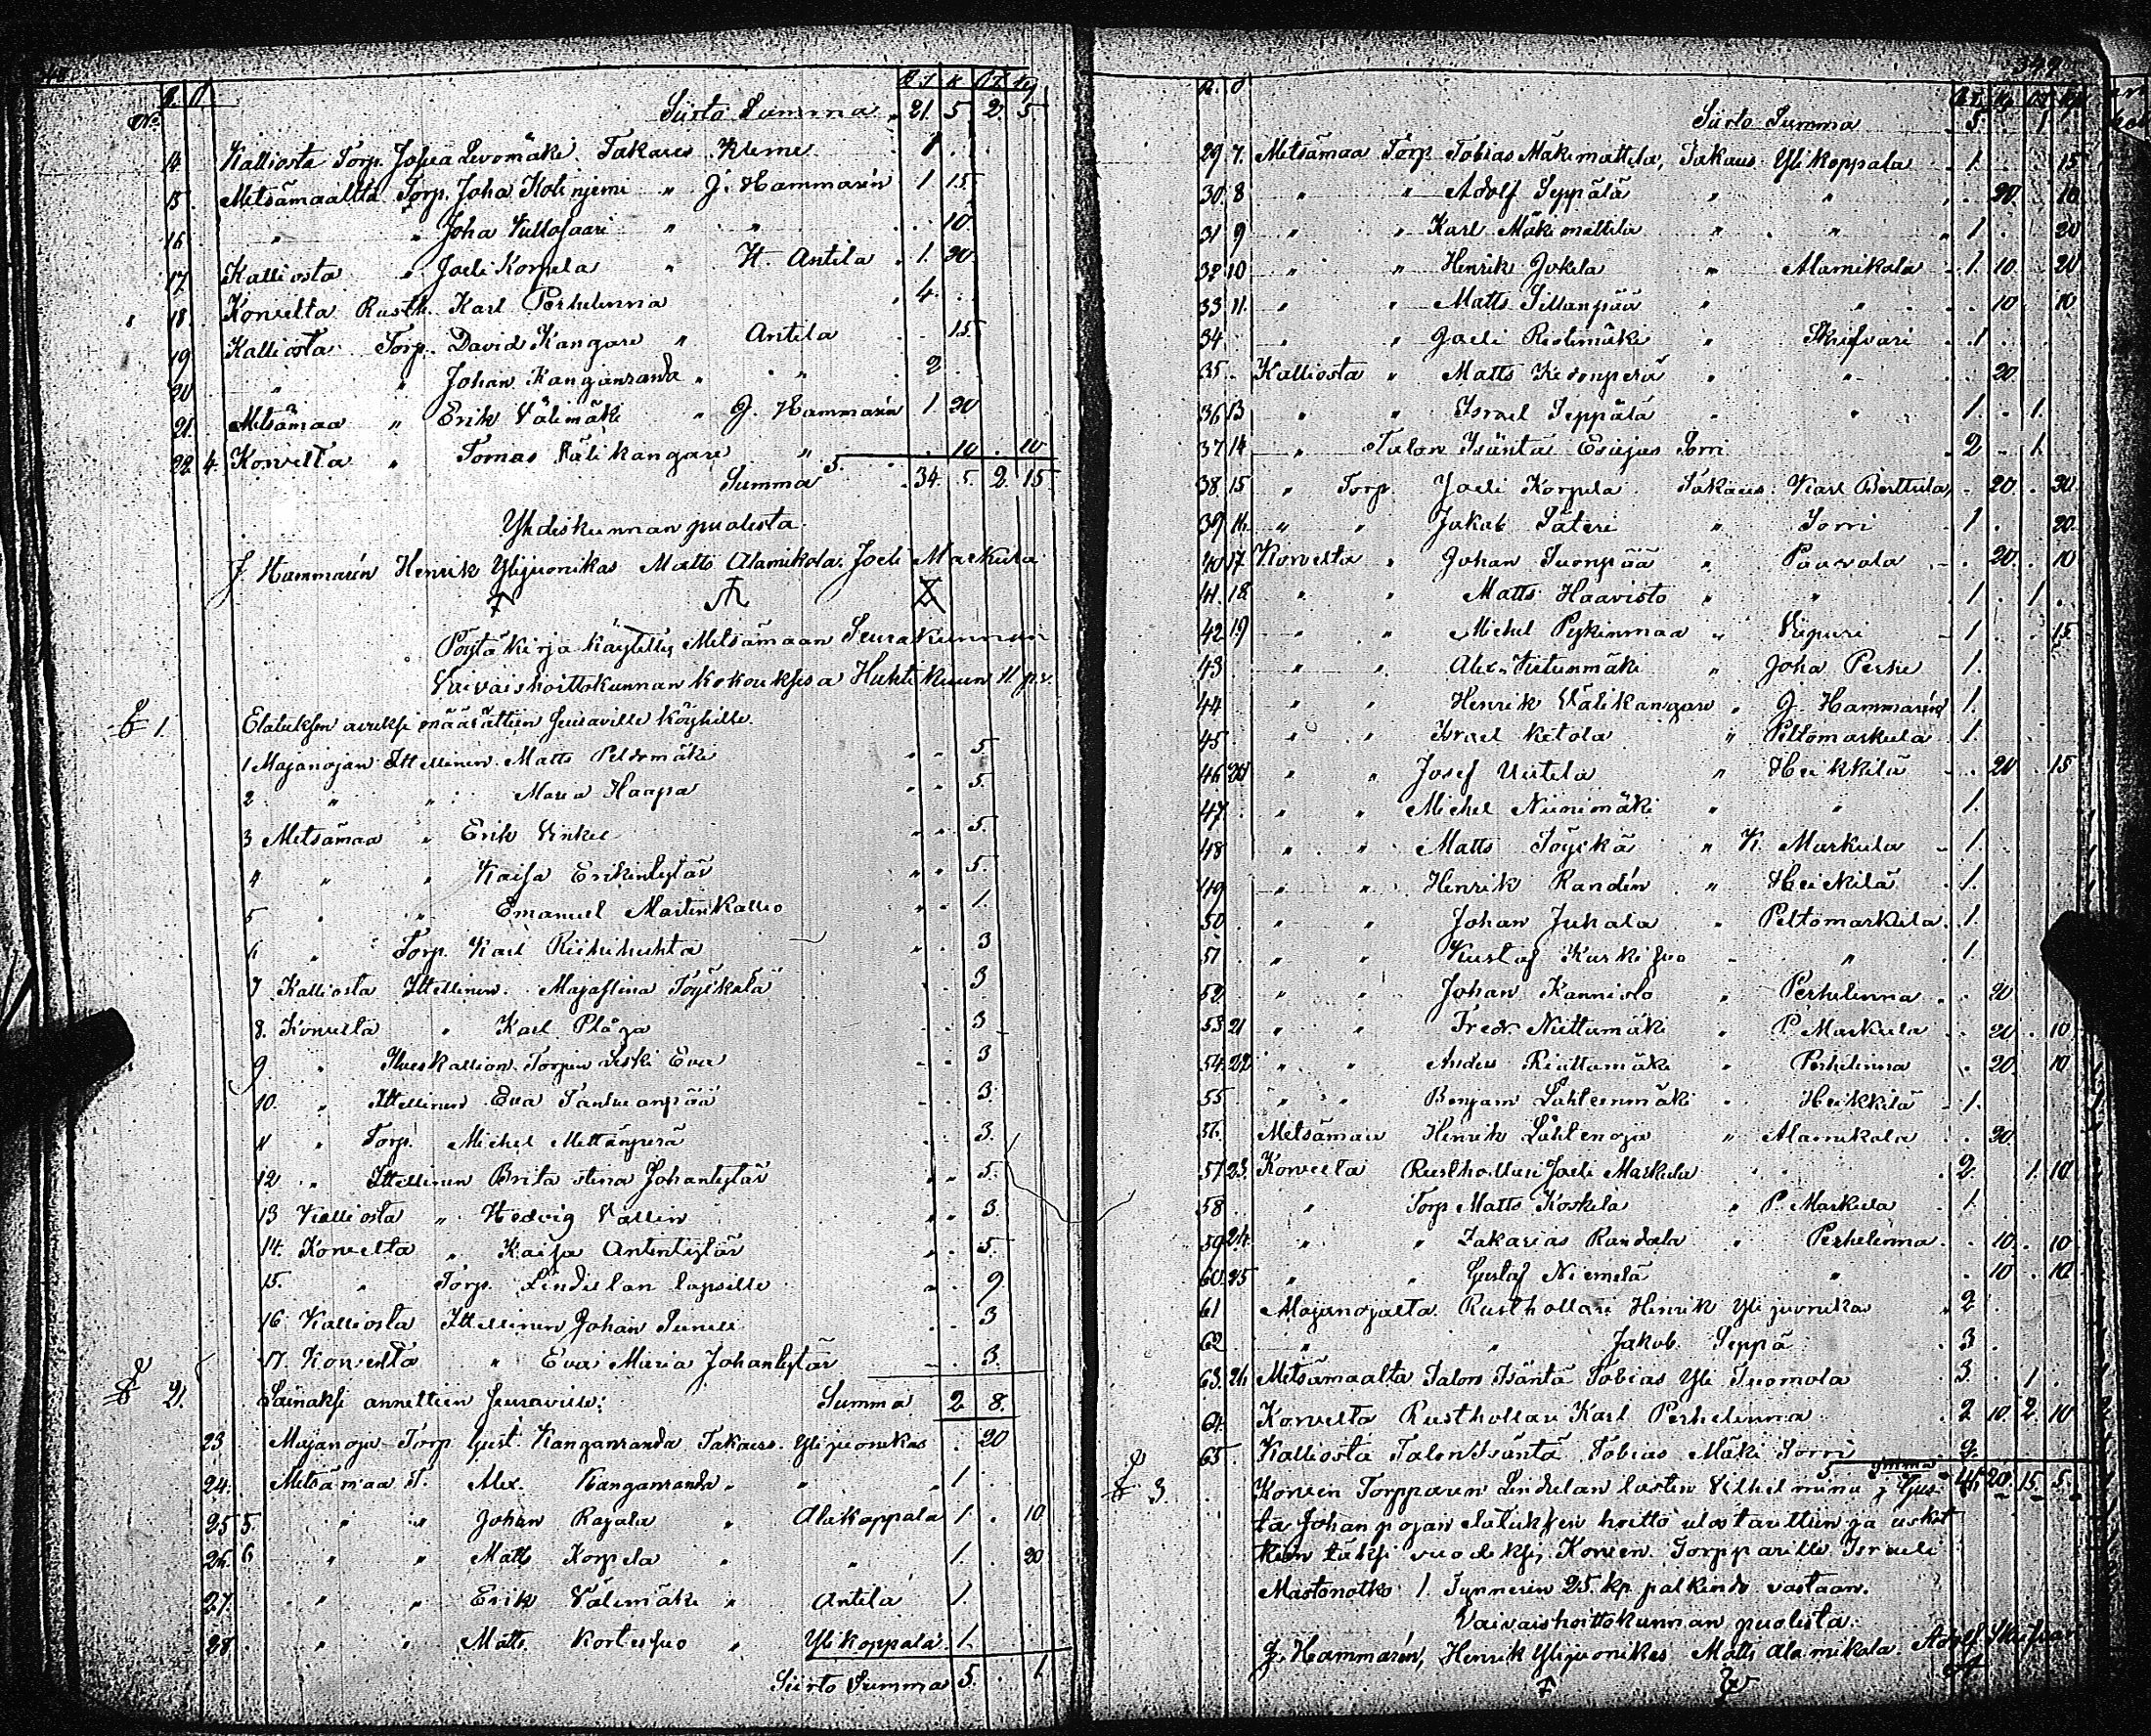 R. O R.T K O.T. Kp
No. Siirto Summa 21. 5. 2. 5.
14 Kalliosta Torp. Josua Levomäki Takaus Kleme 1
15 Metsämaalta Torp. Joha Kotiniemi " J. Hammarén 1 15.
16 " " Joha Kullasaari " " 10.
17 Kalliosta " Joeli Korpela " H. Antila 1. 20.
18. Korvelta Rusth. Karl Perhelinna 4.
19 Kalliosta Torp. David Kangare " Antila 15.
20 " " Johan Kanganranda " " 2
21. Metsämaa " Erik Välimäki " J. Hammarén 1. 20
22 4. Korvelta " Tomas Välikangare " 10. 10
Summa 34. 5. 2. 15.
Yhdiskunnan puolesta.
J. Hammarén Henrik Ylijuonikas Matts Alamikola. Joeli Markula
Pöytäkirja käytetty Metsämaan Seurakunnan
Vaivaishoittokunnan kokouksesa Huhtikuun 11 p.v.
§ 1. Elatuksen avuksi määrättiin seuraville köyhille.
1 Majanojan Ittellinen Matts Peldomäki " " 5
2 " " Maria Haapa " " 5.
3 Metsämaa " Erik Vinkel " " 5.
4 " " Kaisa Erikintytär " " 5.
5 " " Emanuel Maitinkallio " " 1.
6 " Torp. Karl Riihihuhta " " 3
7 Kalliosta Ittellinen Majastina Töyskälä 3
8. Korvelta " Karl Pläga 3
9 " Ilveskallion Torpin Leski Eva 3
10. " Ittellinen Eva Tanhuanpää 3.
11 " Torp. Michel Mettänperä 3.
12 " Ittellinen Brita Stina Johantytär 5.
13 Kalliosta " Hedvig Vallin 3.
14. Korvelta " Kaisa Antintytär 5.
15. " Torp. Lindulan lapsille 9
16 Kalliosta Ittellinen Johan Sunell 3
17. Korvelta " Eva Maria Johantytär 3.
§ 2. Lainaksi annettiin seuraville: Summa 2 8.
23 Majanoja Torp Gust. Kanganranda Takaus. Ylijuonikas . 20
24. Metsämaa T. Alex. Kanganranda " " 1.
25 5. " " Johan Rajala " Alakoppala 1. 10
26. 6 " " Matts Korpela " " 1. 20
27. " " Erik Välimäki " Antila 1.
28. " " Matts Kortessuo " Ylikoppala 1.
Siirto Summa 5. 1.
R. O R.T. Kp O.T Kp
Siirto Summa 5. 1.
29 7. Metsämaa Torp Tobias Mäkimattila, Takaus Ylikoppala 1. 15
30. 8 " " Adolf Seppälä " " 20 10
31 9 " " Karl Mäkimattila " " 1. 20
32 10 " " Henrik Jokela " Alamikola 1. 10. 20
33 11. " " Matts Sillanpää " " 10 10
34 " " Joeli Ristimäki " Skrifvari 1.
35. Kalliosta " Matts Kedonperä " " 20
36 13 " " Israel Seppälä " " 1. 1.
37 14 " Talon Isäntä Esajas Sorri 2 1.
38. 15 " Torp. Joeli Korpela Takaus. Karl Berttula 20. 20.
39 16. " " Jakob Säteri " Sorri 1. 20.
40 17. Korvelta " Johan Suonpää " Paavola 20. 10
41. 18. " " Matts Haavisto " " 1. 1.
42. 19 " " Michel Pyskinmaa " Viipuri 1 15
43 " " Alex. Vietunmäki " Joha Perhe 1.
44 " " Henrik Välikangare " J. Hammarén 1.
45 " " Israel Ketola " Peltomarkula 1.
46 20 " " Josef Uutela " Heikkilä 20 15
47 " " Michel Niinimäki " " 1.
48 " " Matts Töyskä " K. Markula 1.
49 " " Henrik Randén " Heickilä 1.
50 " " Johan Juhala " Peltomarkula 1.
51 " " Kustaf Kurkisuo " " 1.
52. " " Johan Kannisto " Perhelinna 20
53 21 " " Fredr. Niittumäki " P. Markula 20 10
54. 22 " " Anders Riittamäki " Perhelinna 20. 10
55 " " Benjam Lähteenmäki " Heikkilä 1.
56. Metsämaa Henrik Lähtenoja " Alamikola 20
57 23. Korvelta Rusthollari Joeli Markula 2. 1. 10
58 " Torp Matts Koskela " P. Markula 1.
59 24. " " Zakarias Randala " Perhelinna 10. 10
60. 25 " " Gustaf Niemelä " 10 10
61 Majanojalta Rusthollari Henrik Ylijuonikas 2
62 " " Jakob Seppä 3
63. 26. Metsämaalta Talon Isäntä Tobias Yli Tuomola 3. 1.
64. Korvelta Rusthollari Karl Perhelinna 2 10. 2 10
65. Kalliosta Talon Isäntä Tobias Mäki Sorri 2
§ 3. Korven Torpparin Lindulan lasten Vilhelmina j. Gus- Summa 45. 20. 15. 5.
ta Johan pojan elatuksen hoitto ulostarittiin ja uskot
tiin täksi vuodeksi, Korven Torpparille Israeli
Mastonotko 1. Tynnerin 25. kp. palkindo vastaan.
Vaivaishoittokunnan puolesta:
J. Hammarén, Henrik Ylijuonikas Matts Alamikola. Adolf Skrifvari